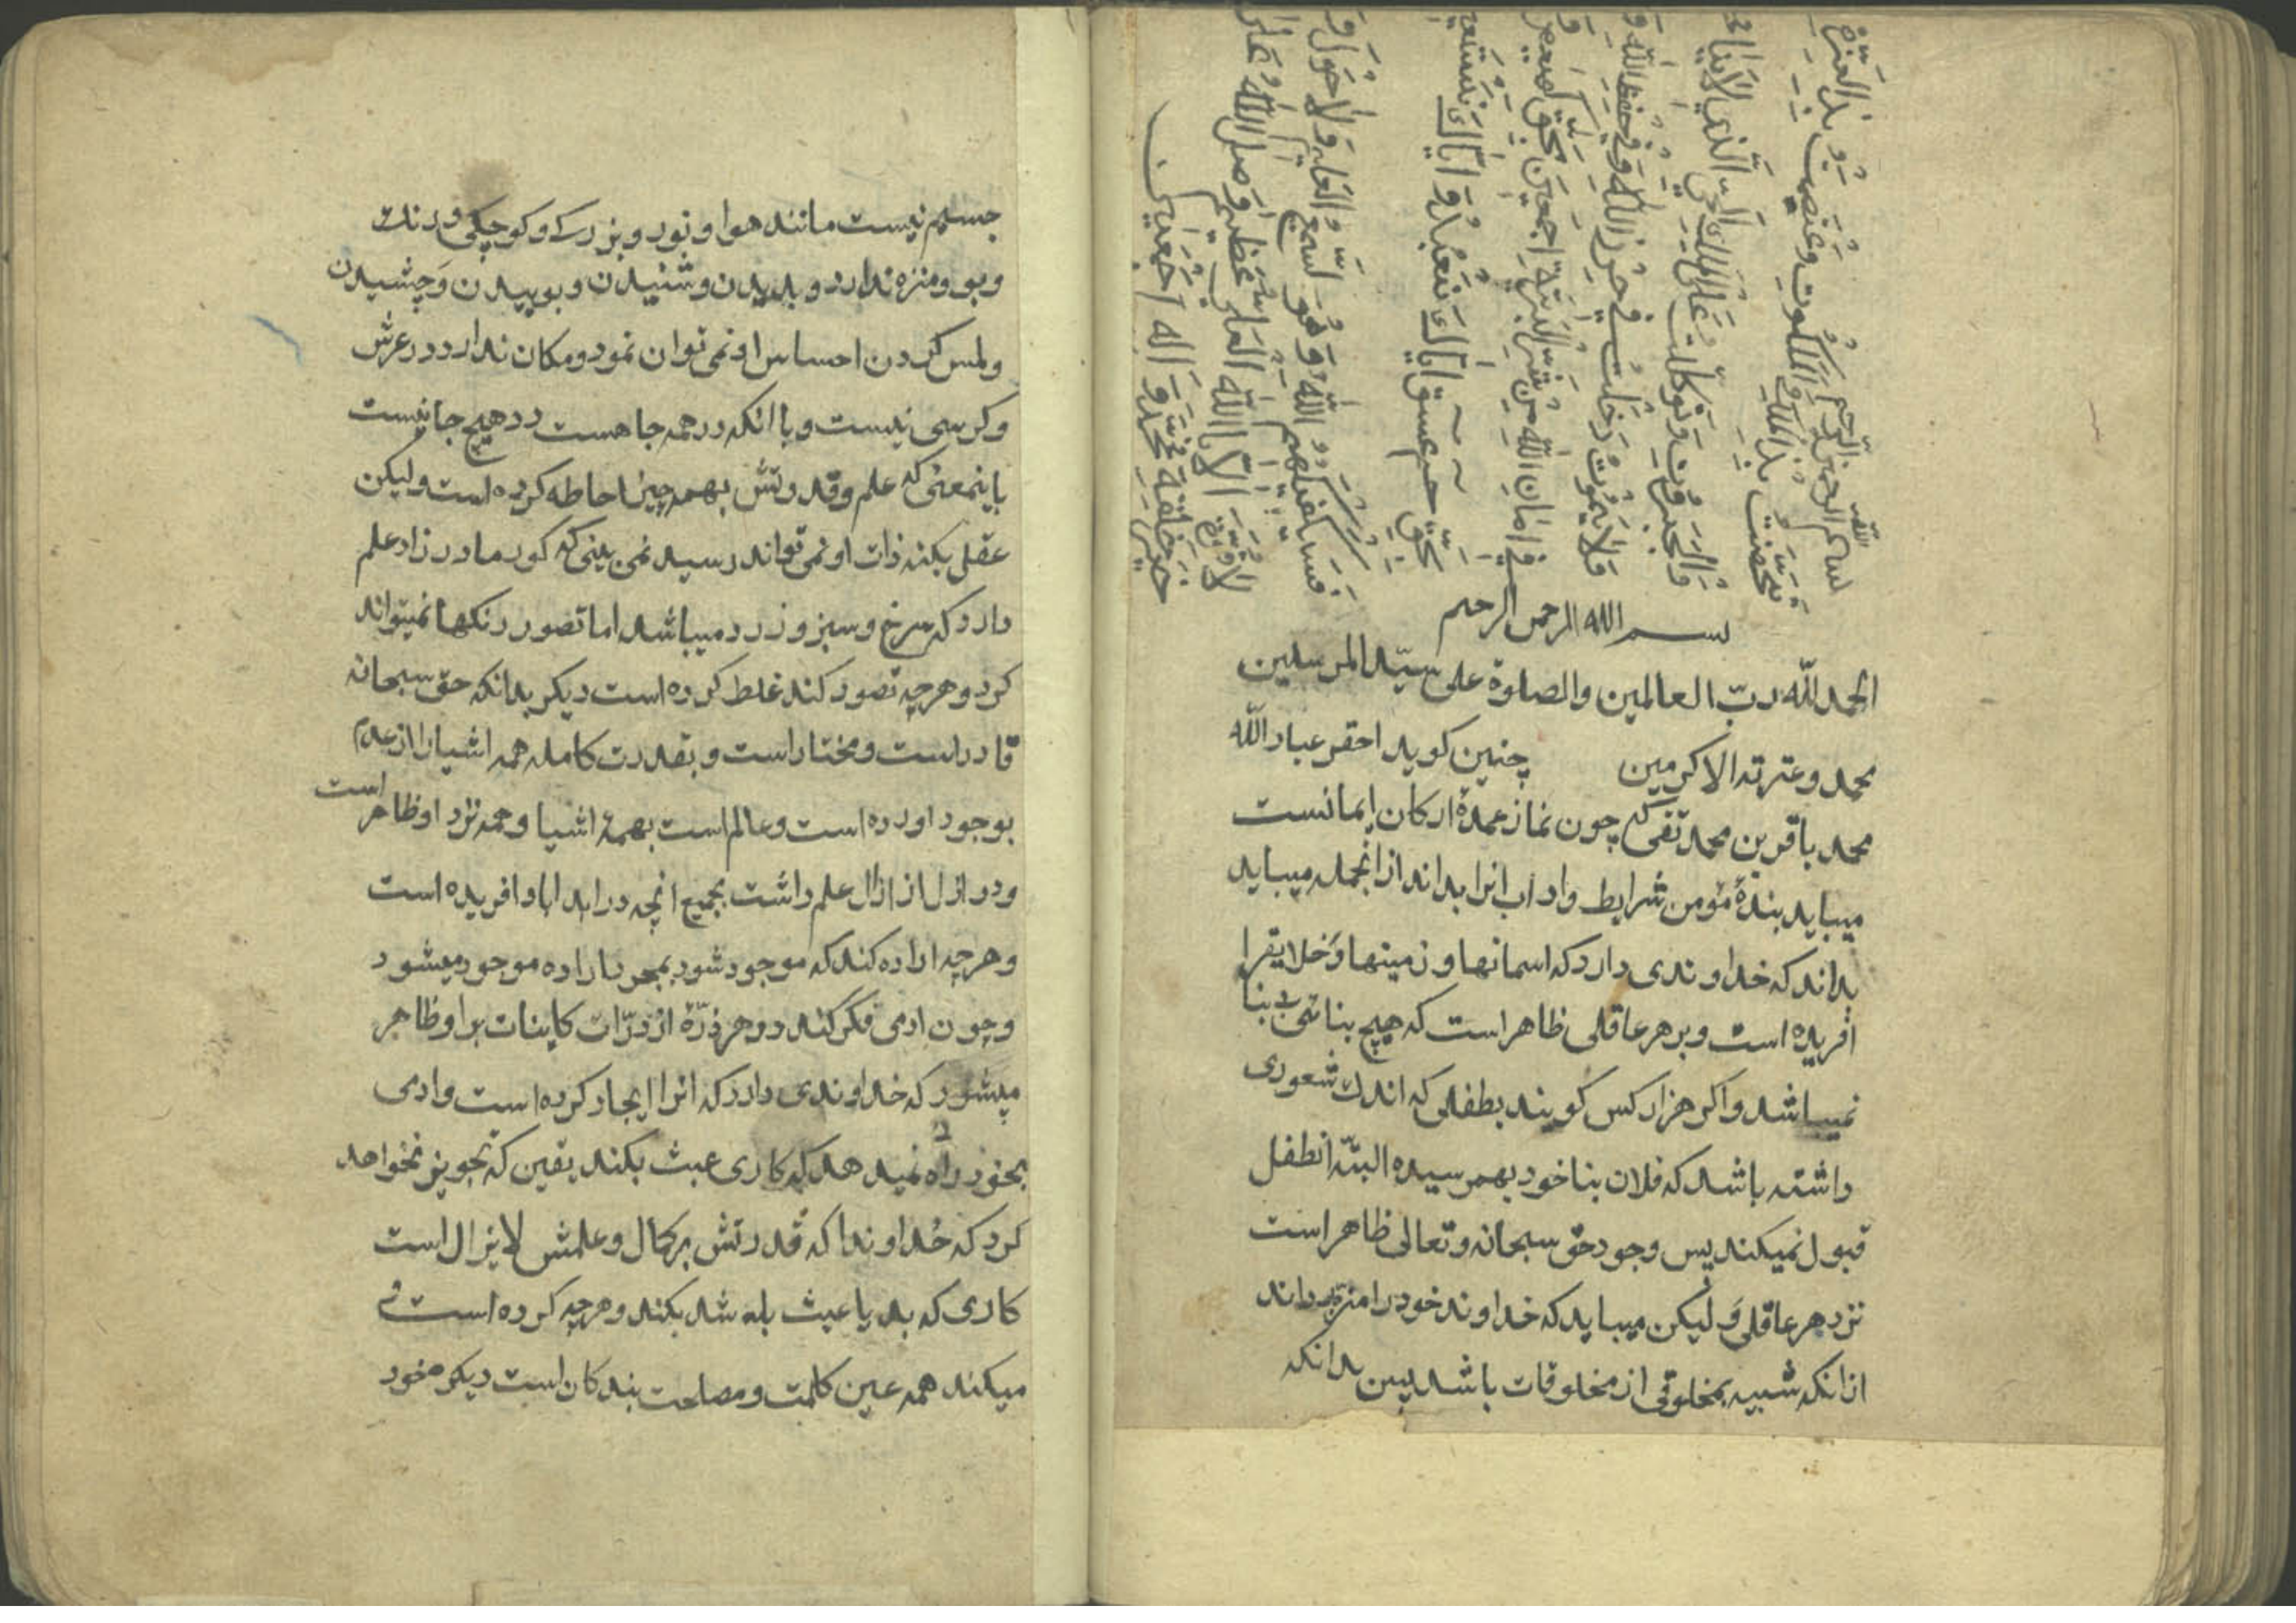 بسم الله الرحمن الرحيم
تحصنت بذي الملك والملكوت واعتصمت بذي العزة
والجبروت وتوكلت على الملك الحي الذي لا ينام
ولا يموت دخلت في حرز الله وفي حفظ الله و
في امان الله من شر البرية اجمعين بحق كهيعص و
بحق حمعسق اياك نعبد واياك نستعين
فسيكفيكهم الله وهو السميع العليم ولا حول و
لا قوة الا بالله العلي العظيم وصلى الله على
خير خلقه محمد واله اجمعين
بسم الله الرحمن الرحيم
الحمد لله ربّ العالمين والصلوة على سيّد المرسلين
محمد وعترته الاكرمين چنين كويد احقر عباد الله
محمد باقر بن محمد تقى كه چون نماز عمدهٔ اركان ايمانست
ميبايد بندهٔ مؤمن شرايط واداب انرا بداند از انجمله ميبايد
بداند كه خداوندى دارد كه اسمانها وزمينها وخلايقرا
افريده است وبر هر عاقلى ظاهر است كه هيچ بنائى بى بنا
نميباشد واكر هزار كس كويند بطفلى كه اندك شعورى
داشته باشد كه فلان بنا خود بهمرسيده البتّه انطفل
قبول نميكند پس وجود حق سبحانه وتعالى ظاهر است
نزد هر عاقلى وليكن ميبايد كه خداوند خود را منزه داند
از انكه شبيه بمخلوقى از مخلوقات باشد پس بدانكه
جسم نيست مانند هوا ونور وبزركى وكوچكى ورنك
وبو ومزه ندارد وبديدن وشنيدن وبوييدن وچشيدن
ولمس كردن احساس او نمى توان نمود ومكان ندارد در عرش
وكرسى نيست وبا انكه در همه جا هست در هيچ جا نيست
باينمعنى كه علم وقدرتش بهمه چيز احاطه كرده است وليكن
عقل بكنه ذات او نمى تواند رسيد نمى بينى كه كور مادرزاد علم
دارد كه سرخ وسبز وزرد ميباشد اما تصور رنكها نميتواند
كرد وهرچه تصور كند غلط كرده است ديكر بدانكه حق سبحانه
قادر است ومختار است وبقدرت كامله همه اشيا را از عدم
بوجود اورده است وعالم است بهمهٔ اشيا وهمه نزد او ظاهر است
ودر ازل ازال علم داشت بجميع انچه در ابد اباد افريده است
وهرچه اراده كند كه موجود شود بمجرد اراده موجود ميشود
وچون ادمى فكر كند در هر ذرّهٔ از ذرّات كاينات بر او ظاهر
ميشود كه خداوندى دارد كه انرا ايجاد كرده است وادمى
بخود راه نميدهد كه كارى عبث بكند يقين كه تجويز نخواهد
كرد كه خداوندا كه قدرتش بر كمال وعلمش لا يزال است
كارى كه بد يا عبث باشد بكند وهرچه كرده است و
ميكند همه عين حكمت ومصلحت بندكان است ديكر